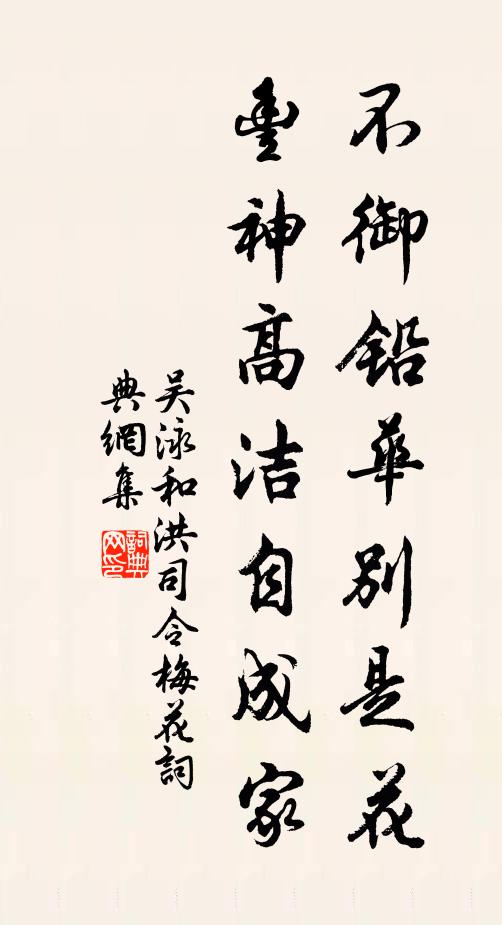 不御铅华别是花
豊神高洁自成家
吴泳和洪司令梅花詞
典網集
詞典网印